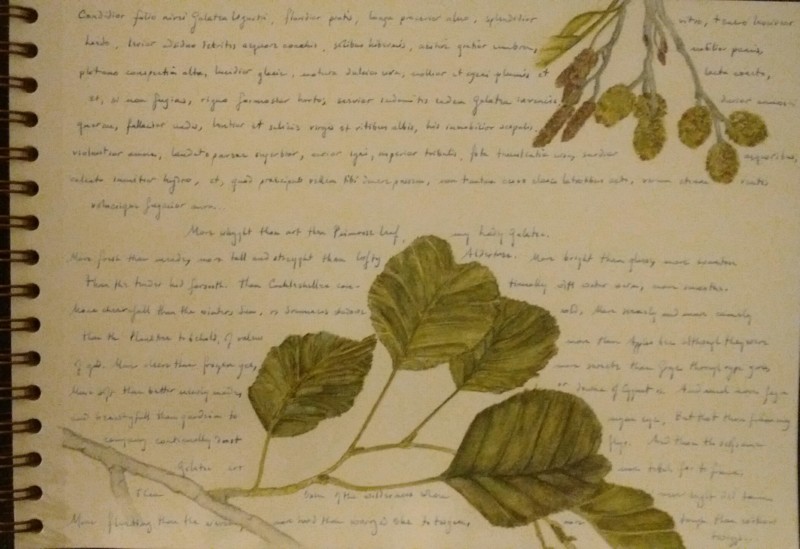 Candidior folio nivei Galatea ligustri, floridior pratis, longa procerior alno, splendidior vitro, tenero lascivior
haedo, levior adsiduo detritis aequore conchis, solibus hibernis, aestiva gratior umbra, mobilior
platano conspectior alta, lucidior glacie, matura dulcior uva, mollior et cycni plumis et lacte coacto,
et, si non fugias, riguo formosior horto, saevior indomitis eadem Galatea iuvencis, durior annosa
quercu, fallacior undis, lentior et salicis virgis et vitibus albis, his immobilior scopulis,
violentior amne, laudato pavone superbior, acrior igni, asperior tribulis, feta truculentior ursa, surdior aequoribus,
calcato inmitior hydro, et, quod praecipue vellem tibi demere possem, non tantum cervo claris latratibus acto, verum etiam ventis
volucrique fugacior aura.
More whyght thou art then Primrose leaf, my Lady Galatee.
More fresh than meade, more tall and streyght than lofty Aldertree. More bright than glasse, more wanton
than the tender kid forsooth. Than Cockleshelles con- tinually with water worn, more smoothe.
More cheerefull than the winters Sun, or Sommers shadowe cold, More seemely and more comely
than the Planetree to behold, Of valew more than Apples bee although they were
of gold. More cleere than frozen yce, more sweete than Grape through rype ywis
More soft than butter newly made, or downe of Cygnet is. And much more fayre
and beawtyfull than gardein to myne eye, But that thou from my
company continually doost flye. And thou the selfsame
Galatea for to frame
Than Oxen of the wildernesse whom never wyght did tame
More fleeting than the waves, more hard than warryed Oke to twyne, more tough than willow
twiggs